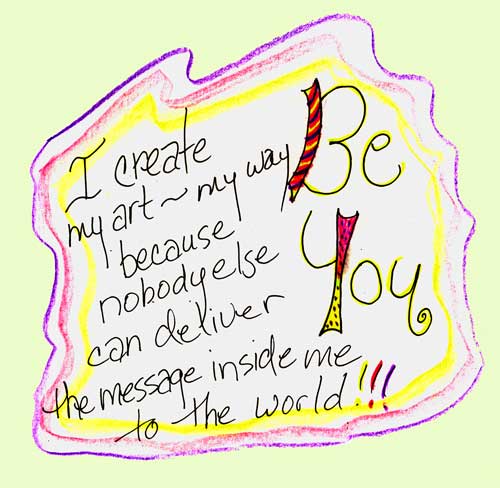 I create
my art ~ my way
because
nobody else
can deliver
the message inside me
to the world!!!
Be
You